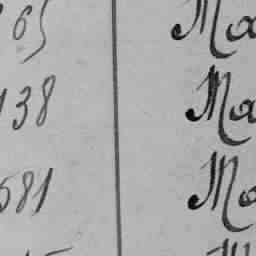 65 Ma
138 Ma
581 Ma